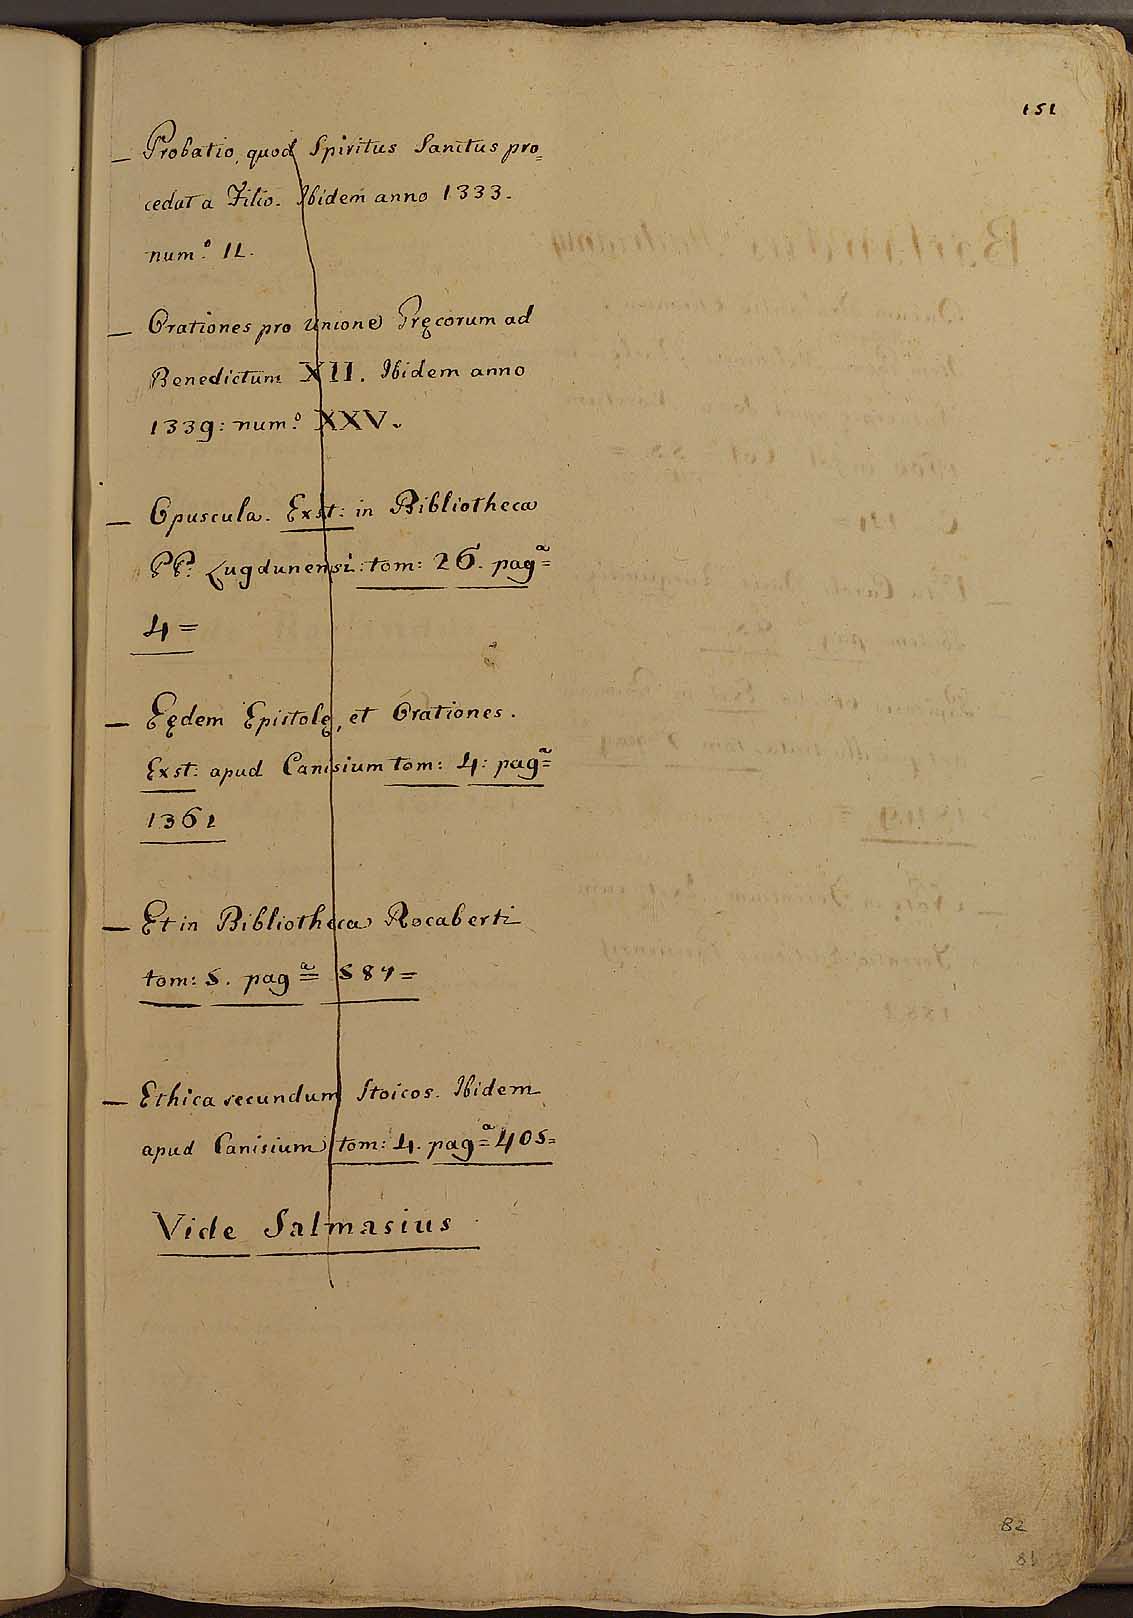 151
— Probatio, quod Spiritus Sanctus pro=
cedat a Filio. Ibidem anno 1333.
num.º II.
— Orationes pro unione Gręcorum ad
Benedictum XII. Ibidem anno
1339: num.º XXV.
— Opuscula. Exst: in Bibliotheca
PP. Lugdunensi: tom: 26. pagª=
4=
— Eędem Epistolę, et Orationes.
Exst: apud Canisium tom: 4: pagª=
1361
— Et in Bibliotheca Rocaberti
tom: 5. pagª= 587=
— Ethica secundum Stoicos. Ibidem
apud Canisium tom: 4. pagª= 405=
Vide Salmasius
82
81